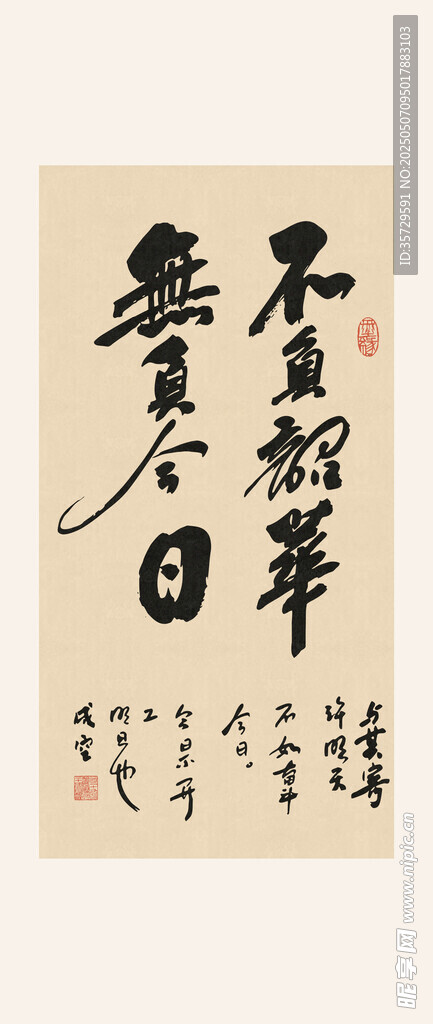 不負韶華
無負今日
与其寄
许明天
不如奋斗
今日。
今日不开
工
明日也
成空
ID:35729591 NO:20250507095017883103
昵享网 www.nipic.cn